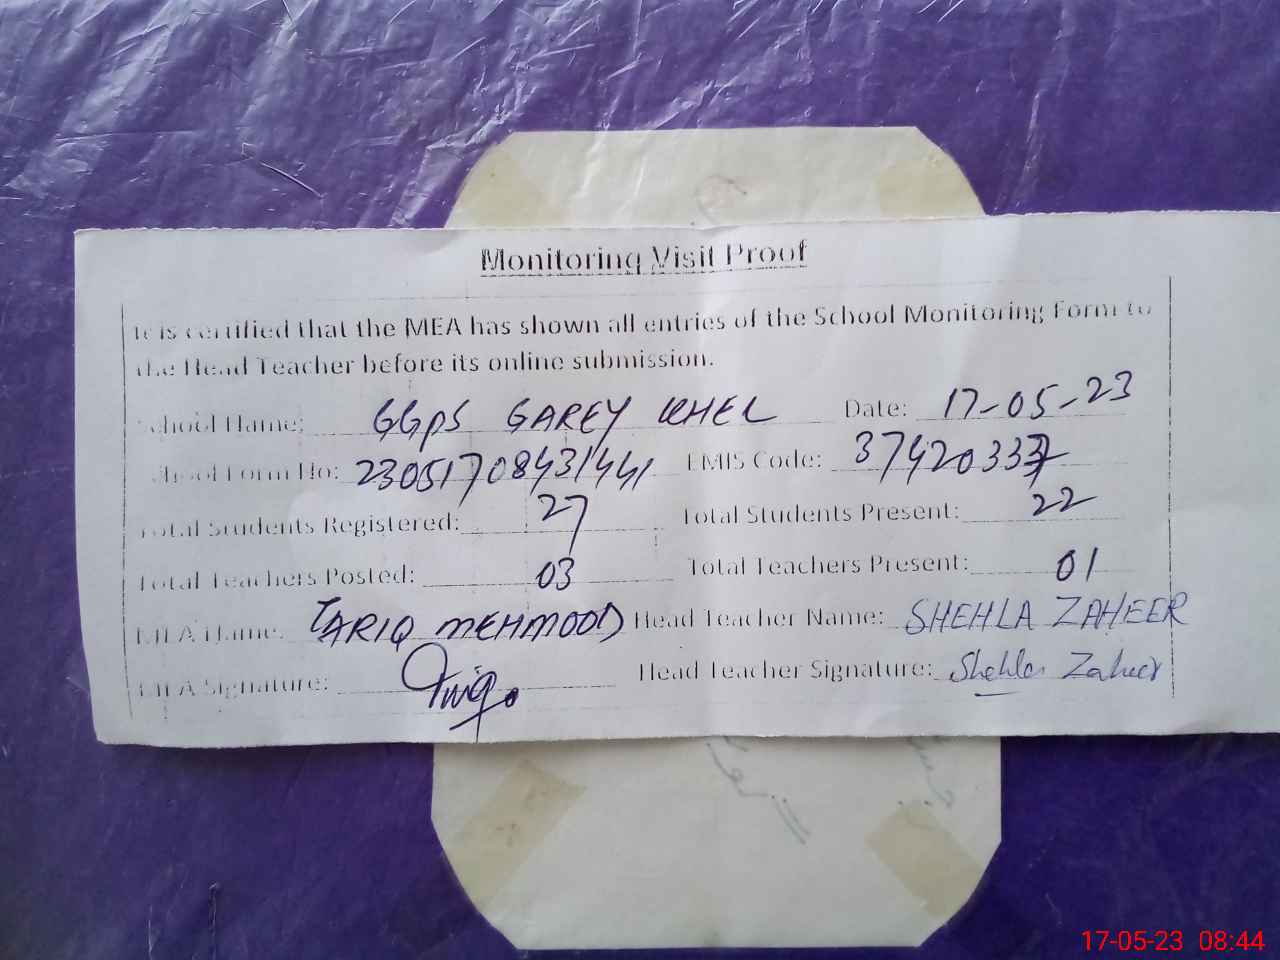 Monitoring Visit Proof
It is certified that the MEA has shown all entries of the School Monitoring Form to
the Head Teacher before its online submission.
School Name: GGPS GAREY KHEL Date: 17-05-23
School Form No: 23051708431441 EMIS Code: 37420337
Total Students Registered: 27 Total Students Present: 22
Total Teachers Posted: 03 Total Teachers Present: 01
MEA Name: TARIQ MEHMOOD Head Teacher Name: SHEHLA ZAHEER
MEA Signature: Head Teacher Signature: Shehla Zaheer
17-05-23 08:44